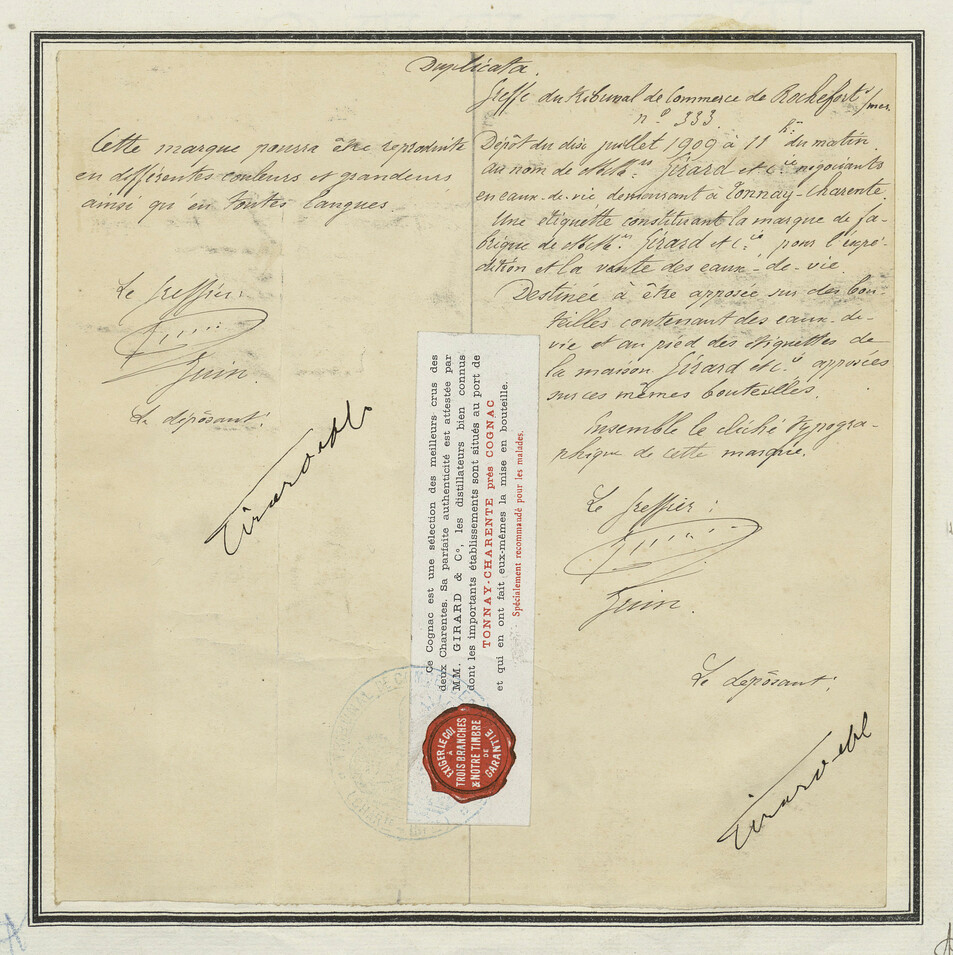 Duplicata.
Cette marque pourra être reproduite
en différentes couleurs et grandeurs
ainsi qu'en toutes langues
Le Greffier:
Le dépôsant:
Greffe du tribunal de Commerce de Rochefort s/mer
nº 333
Dépôt du dix juillet 1909 à 11 h. du matin.
au nom de M.M.rs Girard et Cie négociants
en eaux-de-vie demeurant à Tonnay-Charente.
Une étiquette constituant la marque de fa-
brique de M.M.rs Girard et Cie pour l'expé-
dition et la vente des eaux-de-vie.
Destinée à être apposée sur des bou-
teilles contenant des eaux-de-
vie et au pied des étiquettes de
la maison Girard et Cie apposées
sur ces mêmes bouteilles.
Ensemble le cliché typogra-
phique de cette marque.
Le Greffier:
Le dépôsant:
Ce Cognac est une sélection des meilleurs crus des
deux Charentes. Sa parfaite authenticité est attestée par
MM. GIRARD & Cº, les distillateurs bien connus
dont les importants établissements sont situés au port de
TONNAY-CHARENTE près COGNAC
et qui en ont fait eux-mêmes la mise en bouteille.
Spécialement recommandé pour les malades.
EXIGER LE COL
À
TROIS BRANCHES
& NOTRE TIMBRE
DE
GARANTIE
TRIBUNAL DE COMMERCE